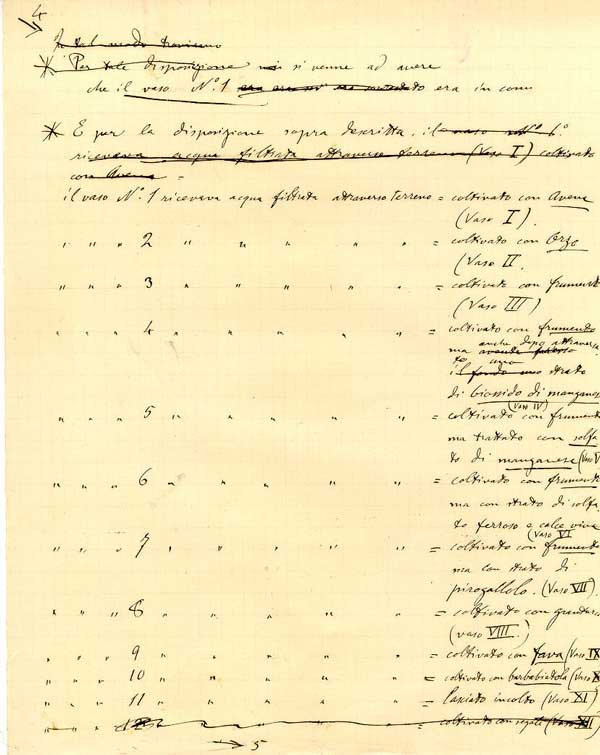 4
In tal modo
* Per tale disposizione si venne ad avere
che il vaso Nº 1 era in com
* E per la disposizione sopra descritta, il vaso Nº
riceveva acqua filtrata attraverso terreno (Vaso I) coltivato
con Avena =
il vaso Nº 1 riceveva acqua filtrata attraverso terreno = coltivato con Avena
(Vaso I).
" " " 2 " " " " " = coltivato con Orzo
(Vaso II
" " " 3 " " " " " = coltivato con frumento
(Vaso III)
" " " 4 " " " " " = coltivato con frumento
ma anche dopo attraversa
to uno
il fondo uno strato
di biossido di manganese
(Vaso IV)
" " " 5 " " " " " = coltivato con frumento
ma trattato con solfa
to di manganese (Vaso V
" " " 6 " " " " " = coltivato con frumento
ma con strato di solfa
to ferroso e calce viva
(Vaso VI
" " " 7 " " " " " = coltivato con frumento
ma con strato di
pirogallolo. (Vaso VII).
" " " 8 " " " " " = coltivato con granturco
(vaso VIII.)
" " " 9 " " " " " = coltivato con fava (Vaso IX
" " " 10 " " " " " = coltivato con barbabietola (Vaso X
" " " 11 " " " " " = lasciato incolto (Vaso XI)
" " " 12 = coltivato con segale (Vaso XII)
→ 5